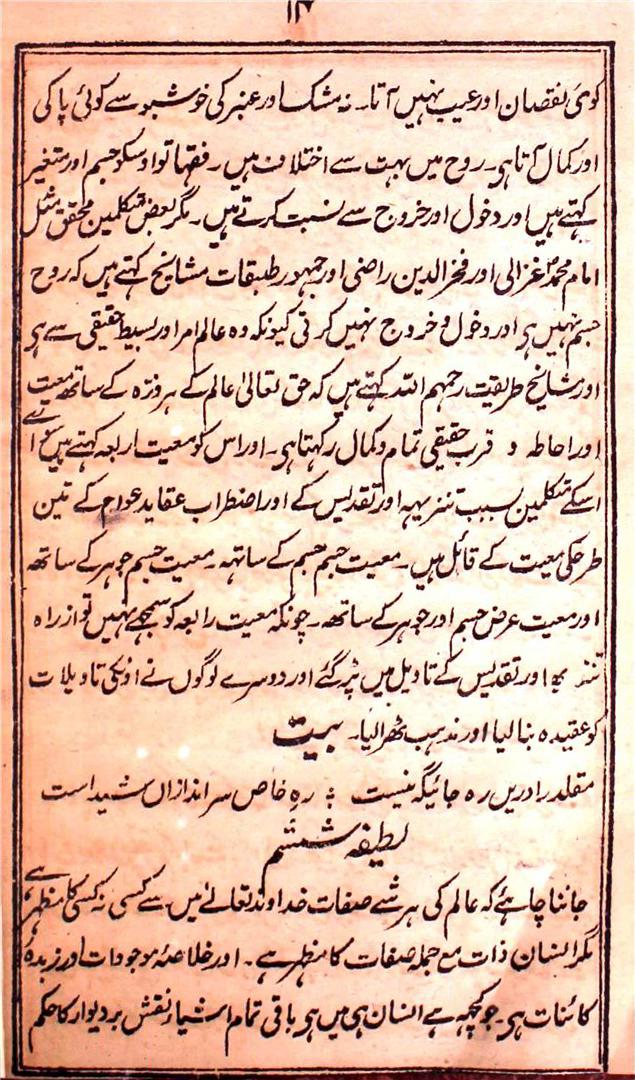 ۱۲
کوئی نقصان اور عیب نہیں آتا۔ نہ مشک اور عنبر کی خوشبو سے کوئی پاکی
اور کمال آتا ہی۔ روح میں بہت سے اختلاف ہیں۔ فقہا تو اوسکو جسم اور متغیر
کہتے ہیں اور دخول اور خروج سے نسبت کرتے ہیں۔ مگر بعض متکلمین محقق مثل
امام محمد غزالی اور فخر الدین راضی اور جمہور طبقات مشایخ کہتے ہیں کہ روح
جسم نہیں ہی اور دخول و خروج نہیں کرتی کیونکہ وہ عالم امر اور بسیط حقیقی سے ہی
اور مشایخ طریقت رحمہم اللہ کہتے ہیں کہ حق تعالیٰ عالم کے ہر ذرّہ کے ساتھ معیت
اور احاطہ و قرب حقیقی تمام و کمال رکہتا ہی۔ اور اس کو معیت رابعہ کہتے ہیں
اسکے متکلمین بسبب تنزیہہ اور تقدیس کے اور اضطراب عقاید عوام کے تین
طرحکی معیت کے قائل ہیں۔ معیت جسم جسم کے ساتہہ۔ معیت جسم جوہر کے ساتھ
اور معیت عرض جسم اور جوہر کے ساتھ۔ چونکہ معیت رابعہ کو سمجھے نہیں تو از راہ
تنزیہ اور تقدیس کے تاویل میں پڑ گئے اور دوسرے لوگوں نے اونکی تاویلات
کو عقیدہ بنا لیا اور مذہب ٹھرالیا۔ بیت
مقلد را دریں رہ جائیگہ نیست ؞ رہِ خاص سر اندازاں شید است
لطیفہ ششم
جاننا چاہئے کہ عالم کی ہر شے صفات خداوند تعالےٰ میں سے کسی نہ کسی کا مظہر ہے
مگر انسان ذات مع جملہ صفات کا مظہر ہے۔ اور خلاصۂ موجودات اور زبدۂ
کائنات ہی۔ جو کچہہ ہے انسان ہی میں ہی باقی تمام اشیاء نقش بر دیوار کا حکم